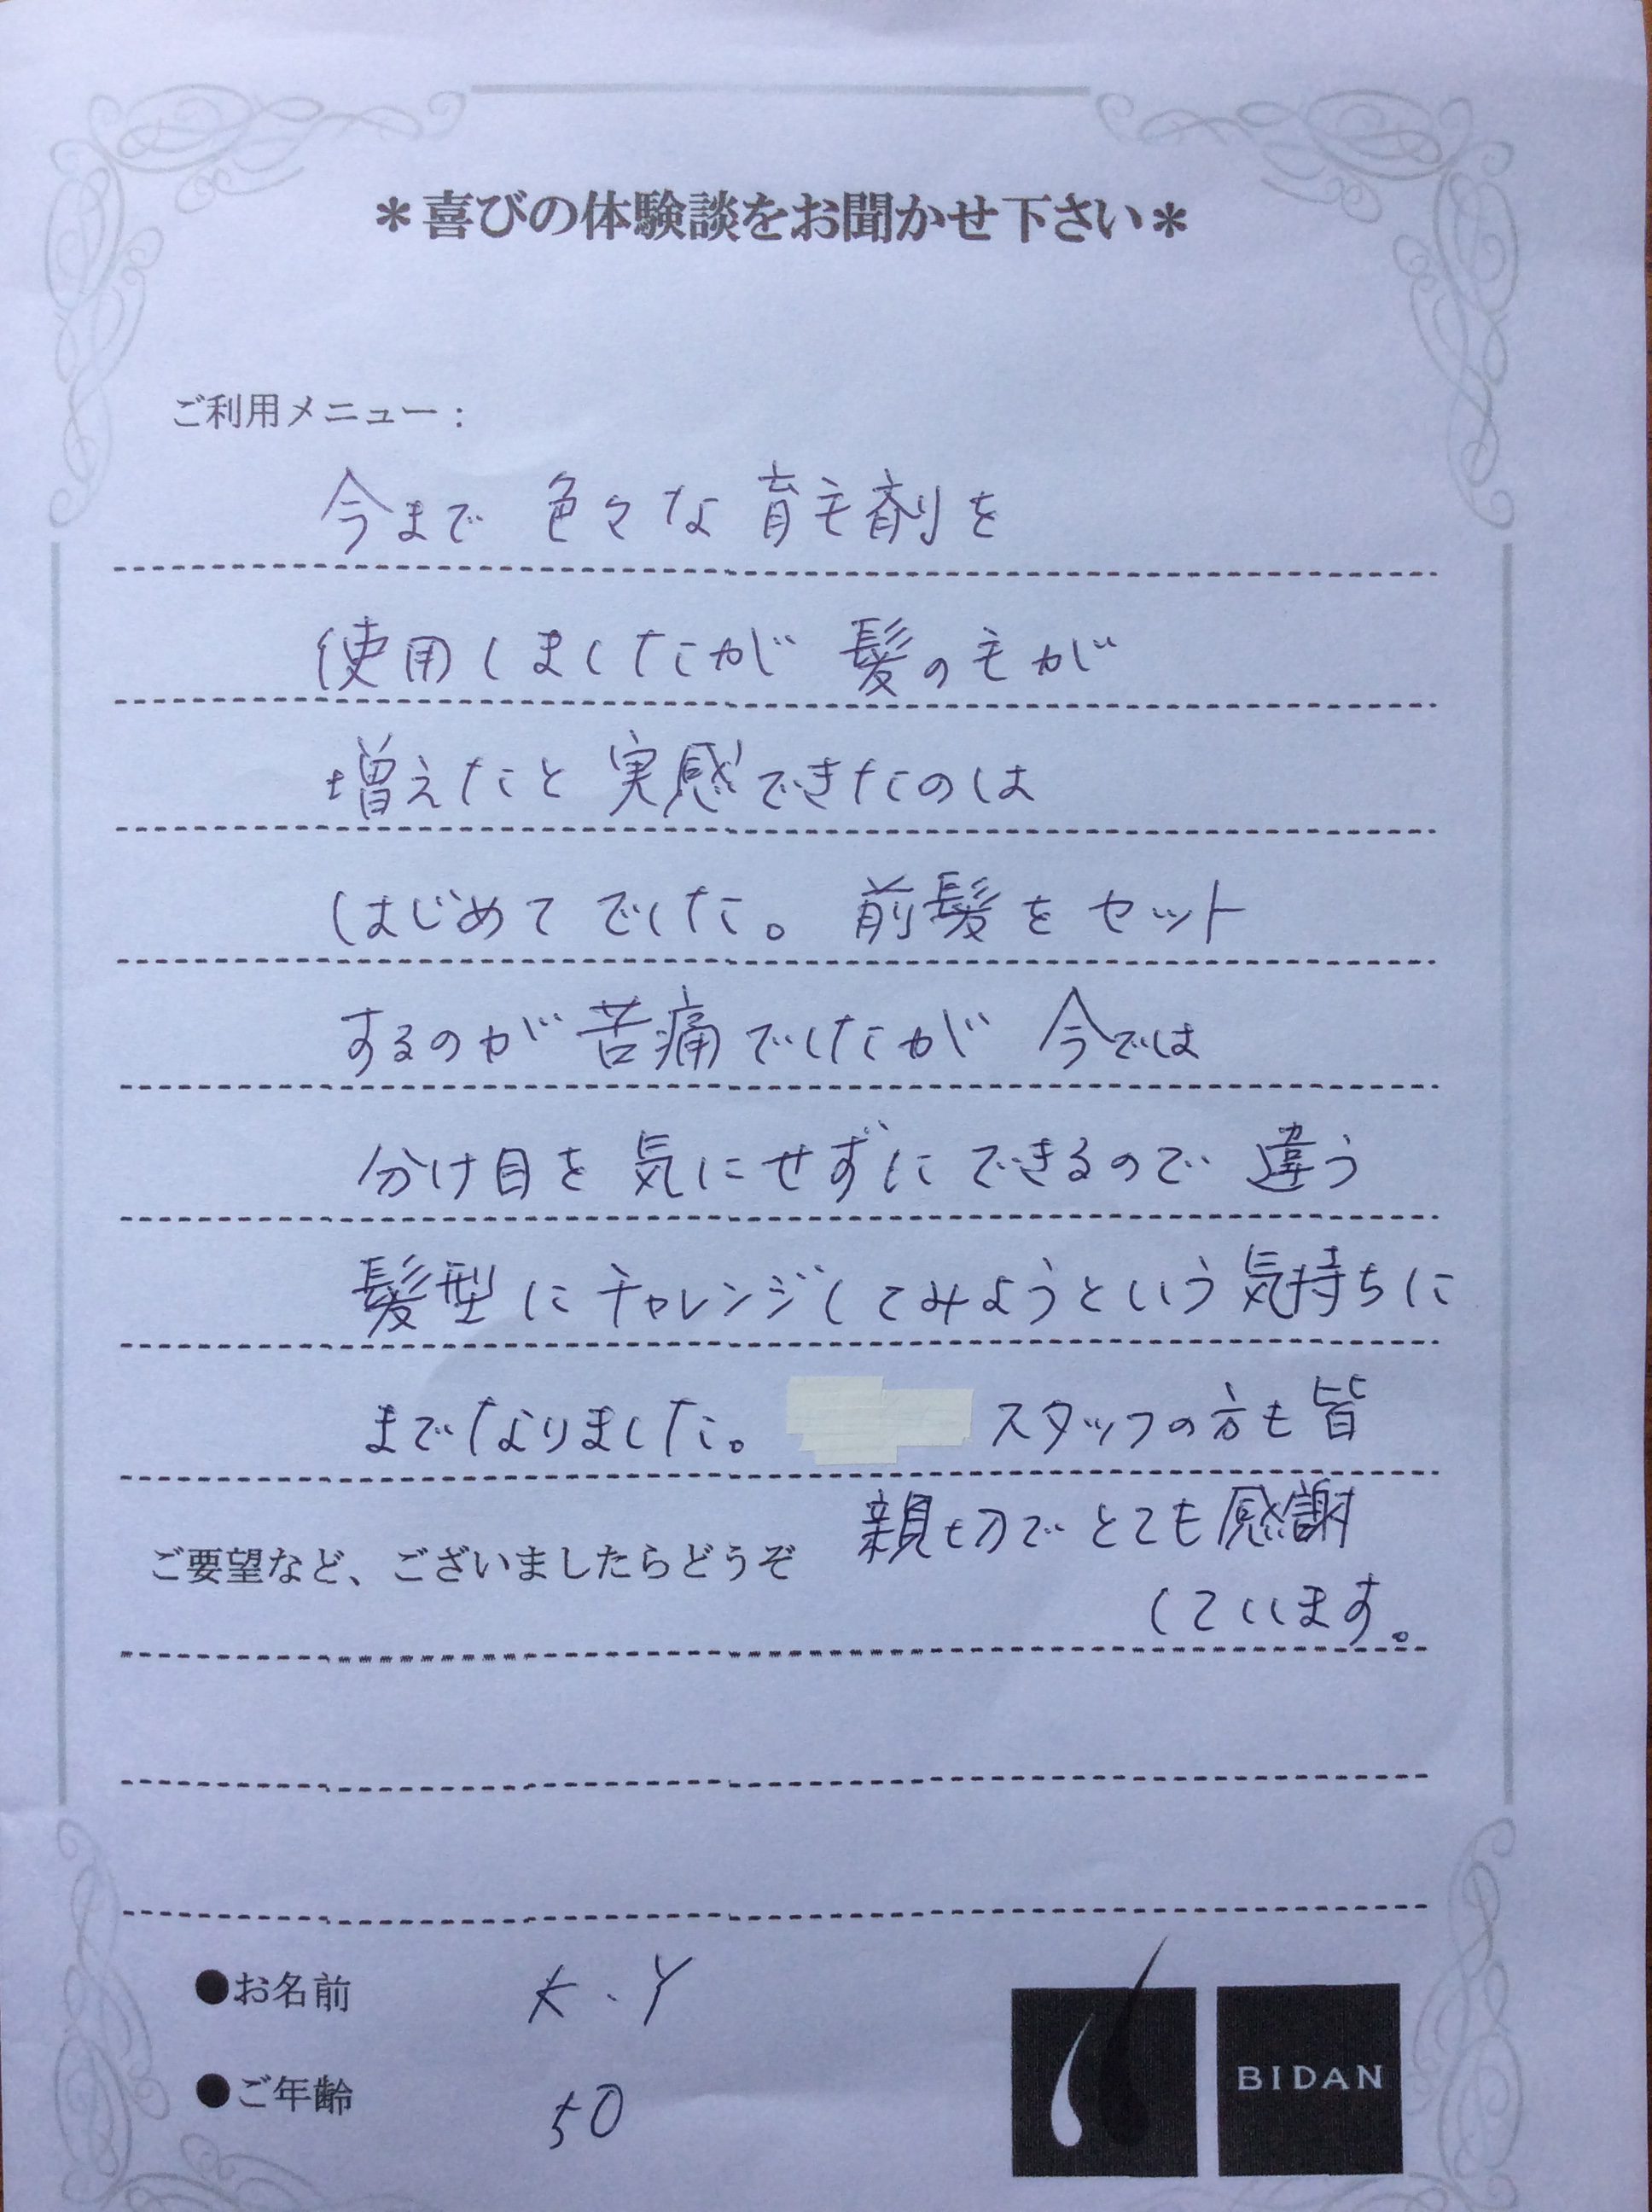 ＊喜びの体験談をお聞かせ下さい＊
ご利用メニュー：
今まで 色々な 育毛剤を
使用しましたが 髪の毛が
増えたと 実感できたのは
はじめて でした。 前髪を セット
するのが 苦痛でしたが 今では
分け目を 気にせずに できるので 違う
髪型に チャレンジしてみようという 気持ちに
までなりました。 スタッフの方も 皆
親切で とても 感謝
しています。
ご要望など、ございましたらどうぞ
●お名前 K.Y
●ご年齢 50
BIDAN